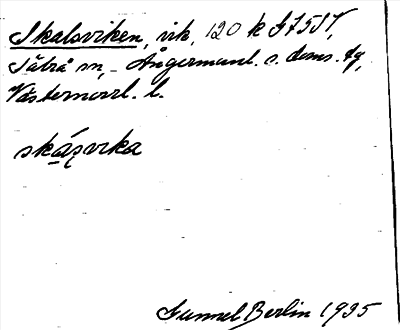 Skalsviken, vik, 120 k G7517,
Säbrå sn, Ångermanl. s. doms. tg,
Västernorrl. l.
skásvika
Gunnel Berlin 1935